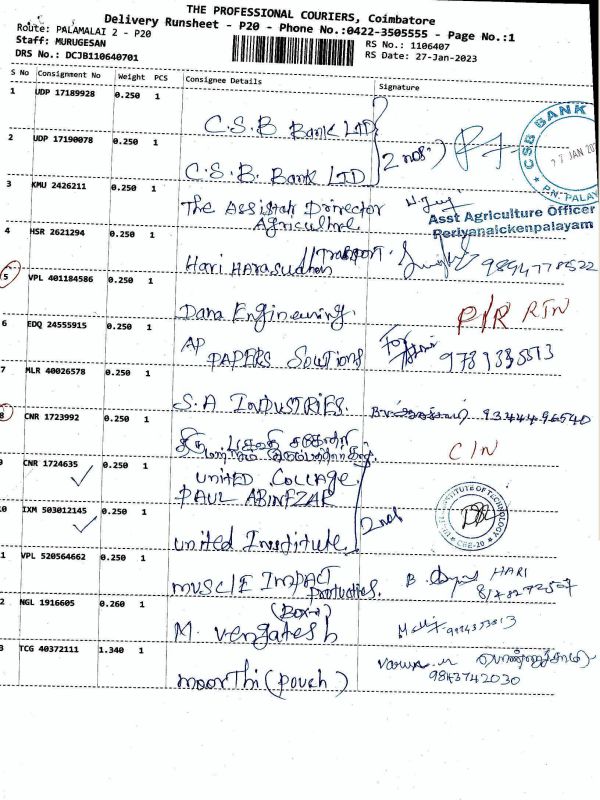 THE PROFESSIONAL COURIERS, Coimbatore
Delivery Runsheet - P20 - Phone No.:0422-3505555 - Page No.:1
Route: PALAMALAI 2 - P20
RS No.: 1106407
Staff: MURUGESAN
RS Date: 27-Jan-2023
DRS No.: DCJB110640701
S No Consignment No Weight PCS Consignee Details Signature
1 UDP 17189928 0.250 1
C.S.B Bank LTD
2 UDP 17190078 0.250 1
C.S.B. Bank LTD
2 nos.
CSB BANK
27 JAN
P.N. PALAY
3 KMU 2426211 0.250 1
The Assistant Director
Agriculture
Asst Agriculture Officer
Periyanaickenpalayam
4 HSR 2621294 0.250 1
Hari Harasudhan
Transport
9894778522
5 VPL 401184586 0.250 1
Dana Engineering.
P/R RTN
6 EDQ 24555915 0.250 1
AP
PAPERS Soutions
For
9789335513
7 MLR 40026578 0.250 1
S.A INDUSTRIES.
9344496540
8 CNR 1723992 0.250 1
திரு
C/N
CNR 1724635 0.250 1
UNITED COLLAGE
PAUL ABINEZAR
0 IXM 503012145 0.250 1
United Institute
2 nos
INSTITUTE OF TECHNOLOGY
CBE-20
1 VPL 520564662 0.250 1
MUSCLE IMPACT
HARI
2 NGL 1916605 0.260 1
(Box-1)
M. Vengatesh
3 TCG 40372111 1.340 1
moorthi (pouch)
9843742030